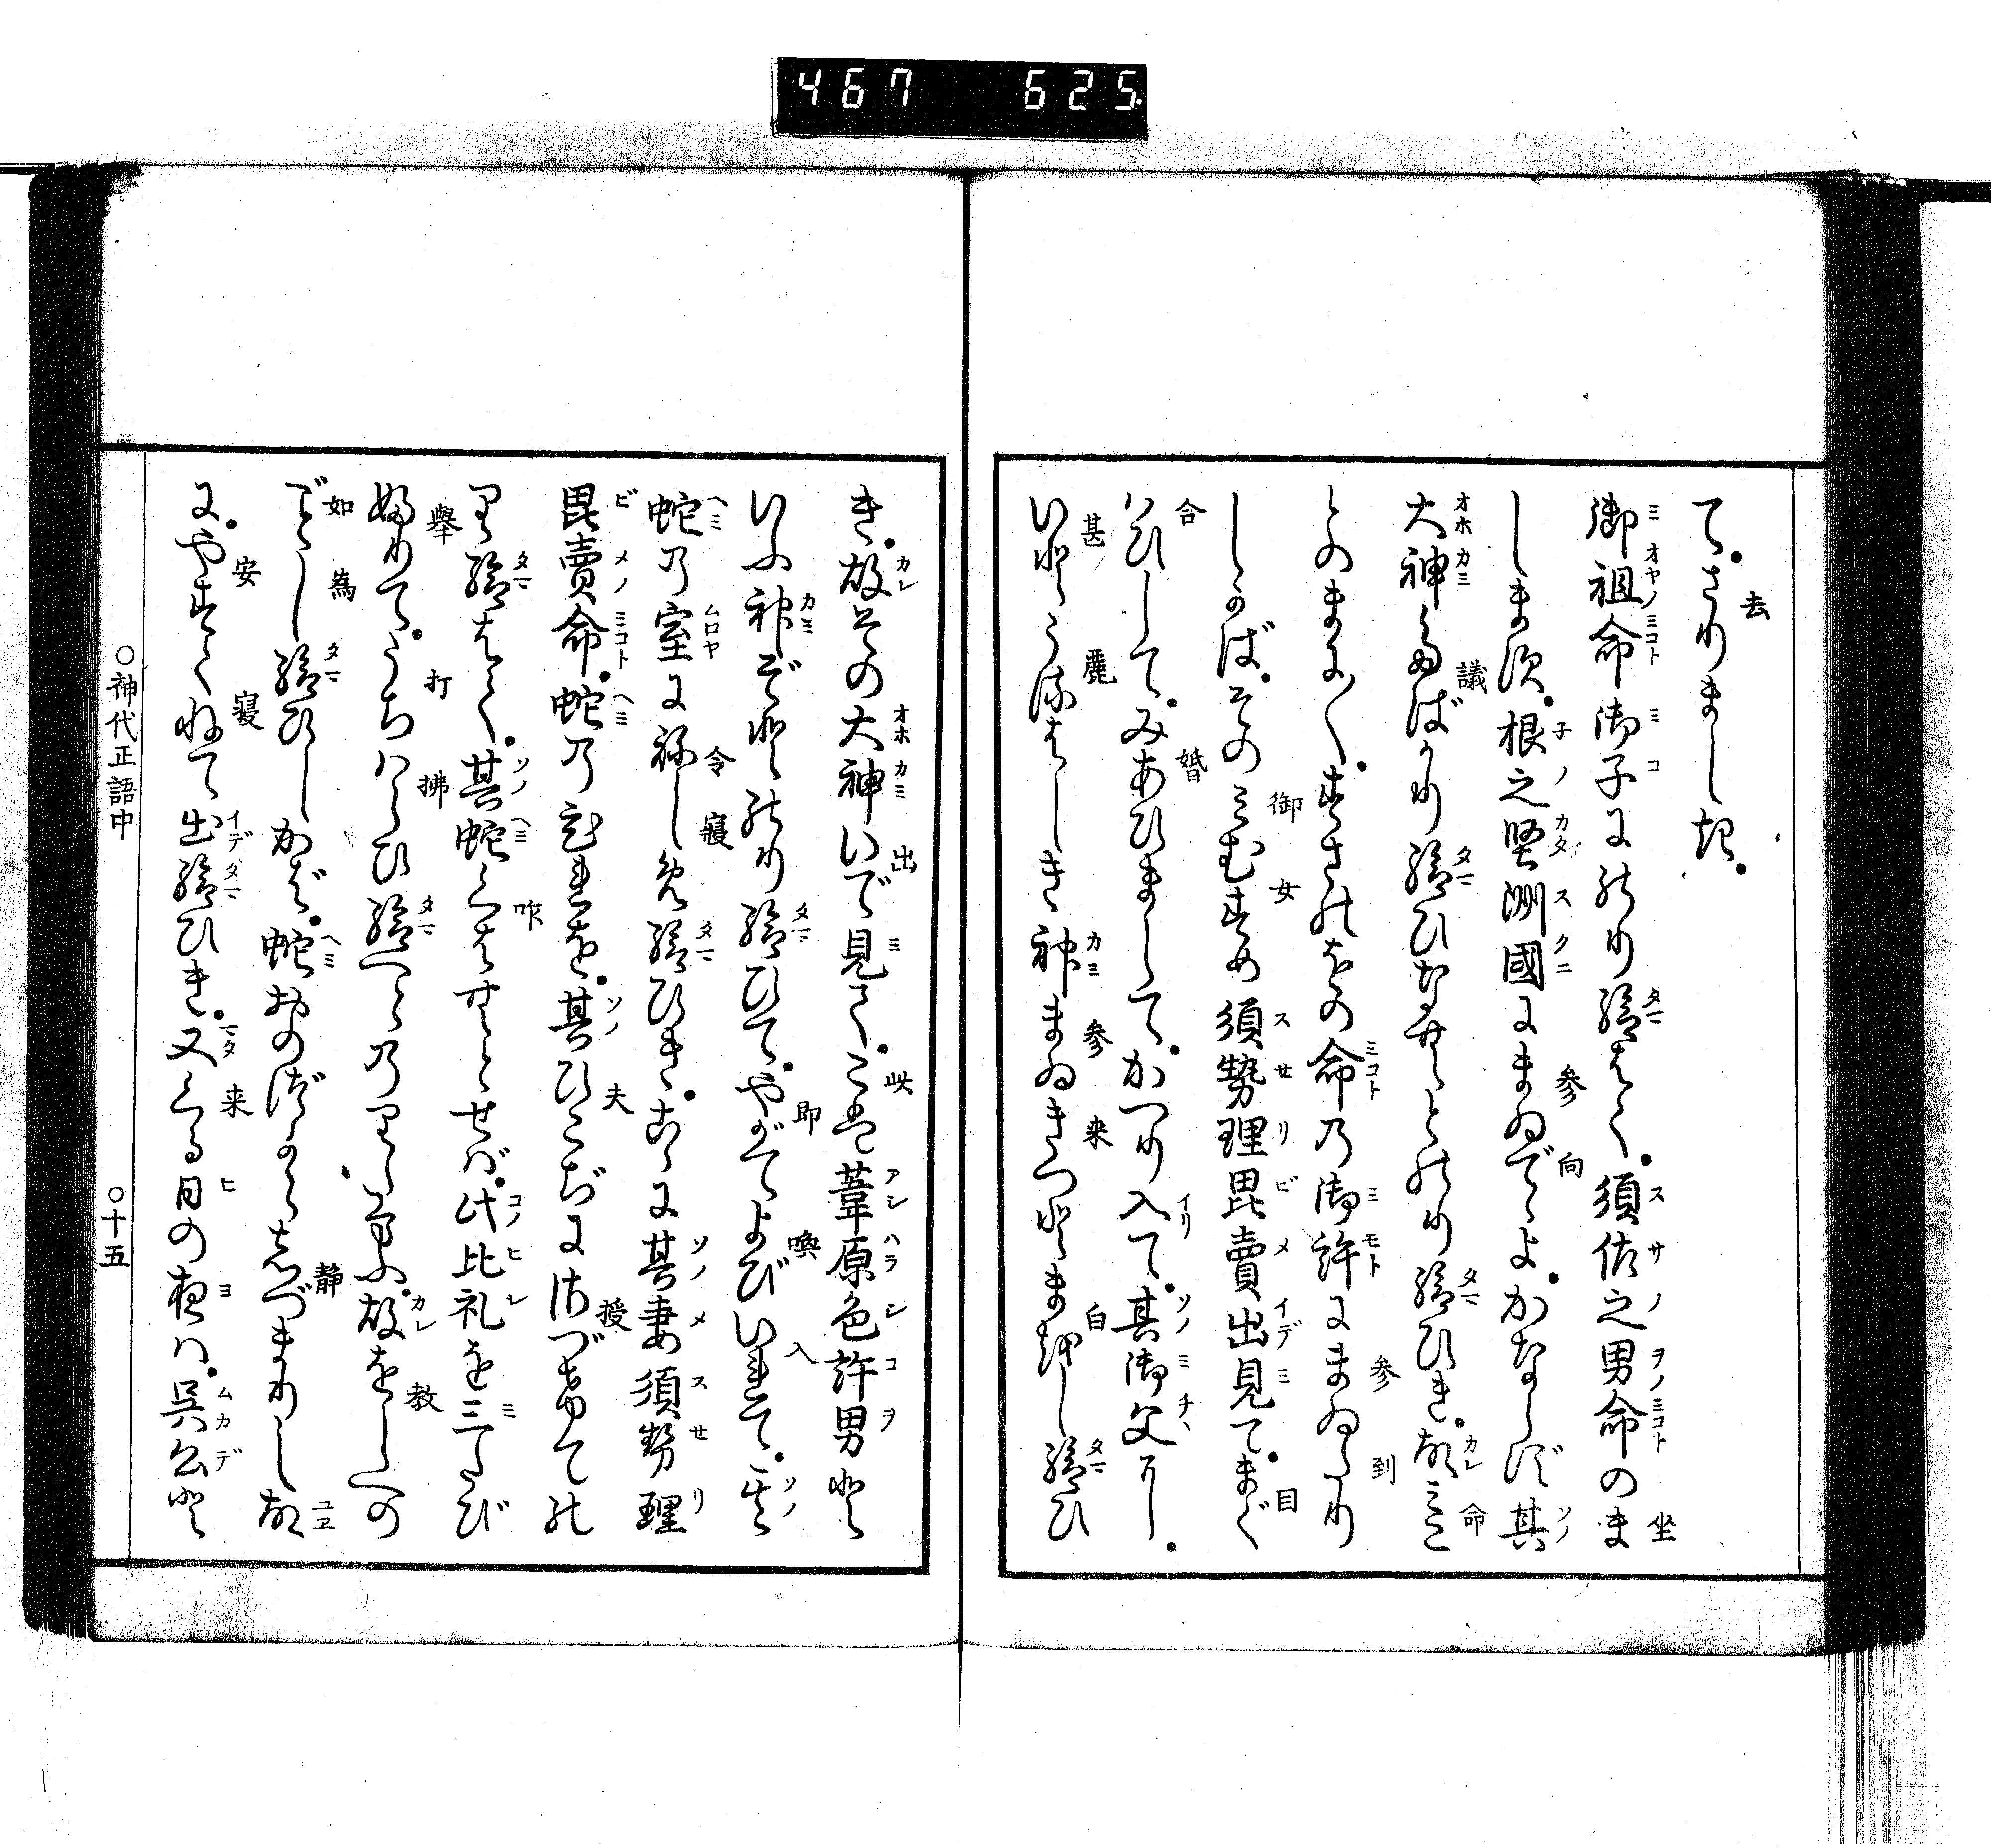 467 625
て。さりましき。
御祖命御子にのり給はく。須佐之男命のま
します。根之堅洲國にまゐでゝよ。かならず其
大神たばかり給ひなむとのり給ひき。故みこ
とのまに〳〵。すさのをの命乃御許にまゐたり
しかば。そのみむすめ須勢理毘賣出見て。まぐ
はひして。みあひまして。かへり入て。其御父に。
いとうるはしき神まゐきつとまをし給ひ
き。故その大神いで見て。こは葦原色許男と
いふ神ぞとのり給ひて。やがてよびいれて。其
蛇乃室にねしめ給ひき。こゝに其妻須勢理
毘賣命。蛇乃ひれを。其ひこぢにさづけての
り給はく。其蛇くはむとせば。此比礼を三たび
ふりて。うちはらひ給へとのりたまふ。故をしへの
ごとし給ひしかば。蛇おのづからしづまりし故
に。やすくねて出給ひき。又くる日の夜は。呉公と
○神代正語中 ○十五